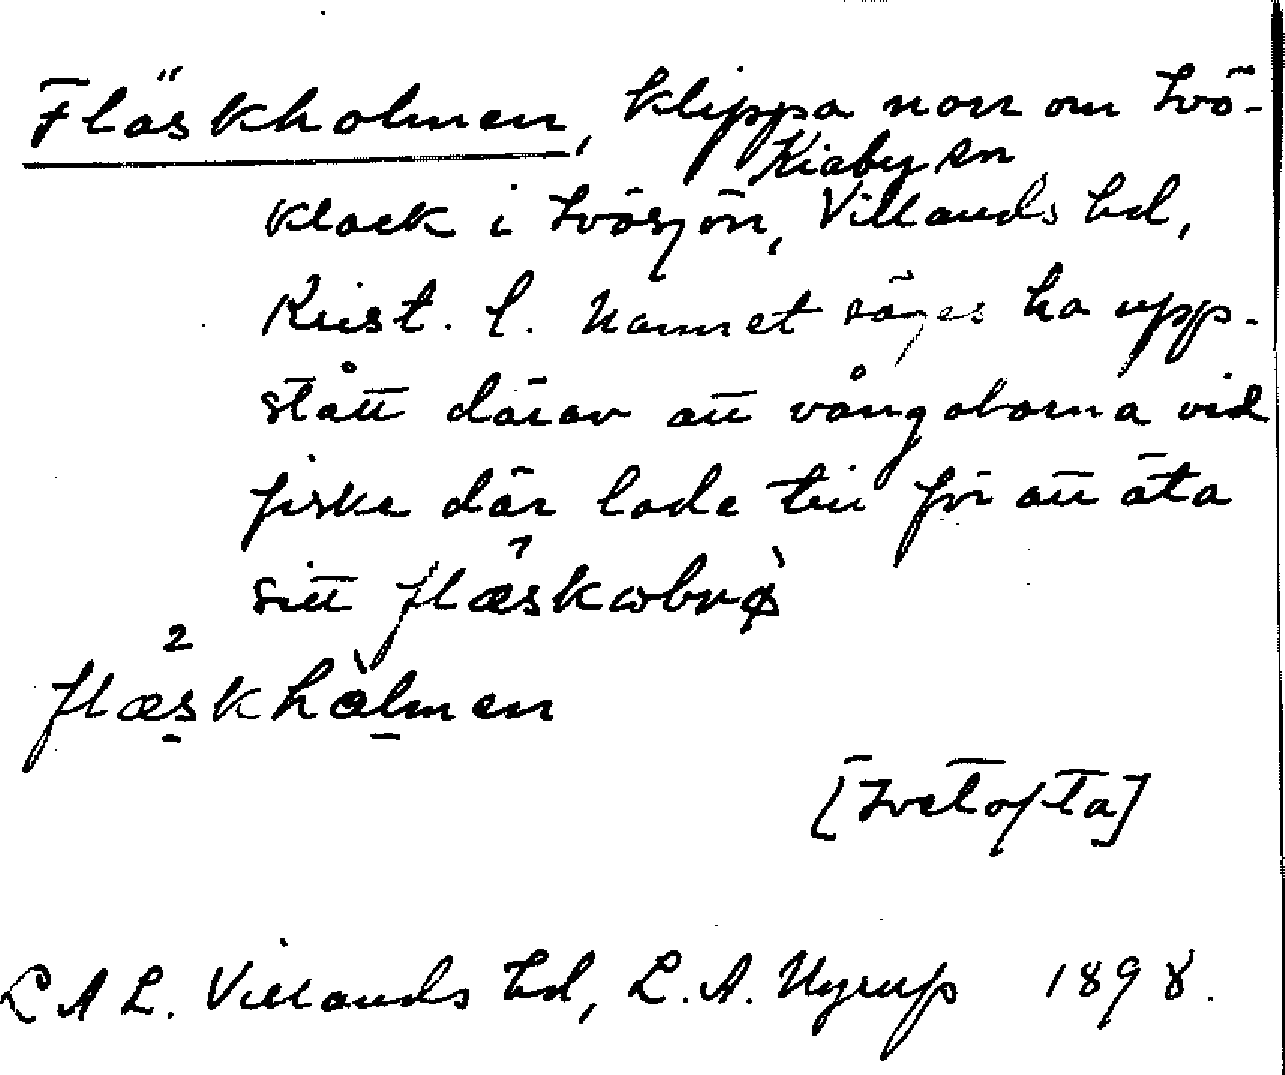 Fläskholmen, klippa norr om Ivö-
Kiaby sn
klack i Ivösjön, Villands hd,
Krist. l. Namnet säges ha upp-
stått därav att vångaborna vid
fiske där lade till för att äta
sitt flæskɷbrø
flæskhålmen
[Ivetofta]
LAL. Villands hd, L.A. Nyrup 1898.